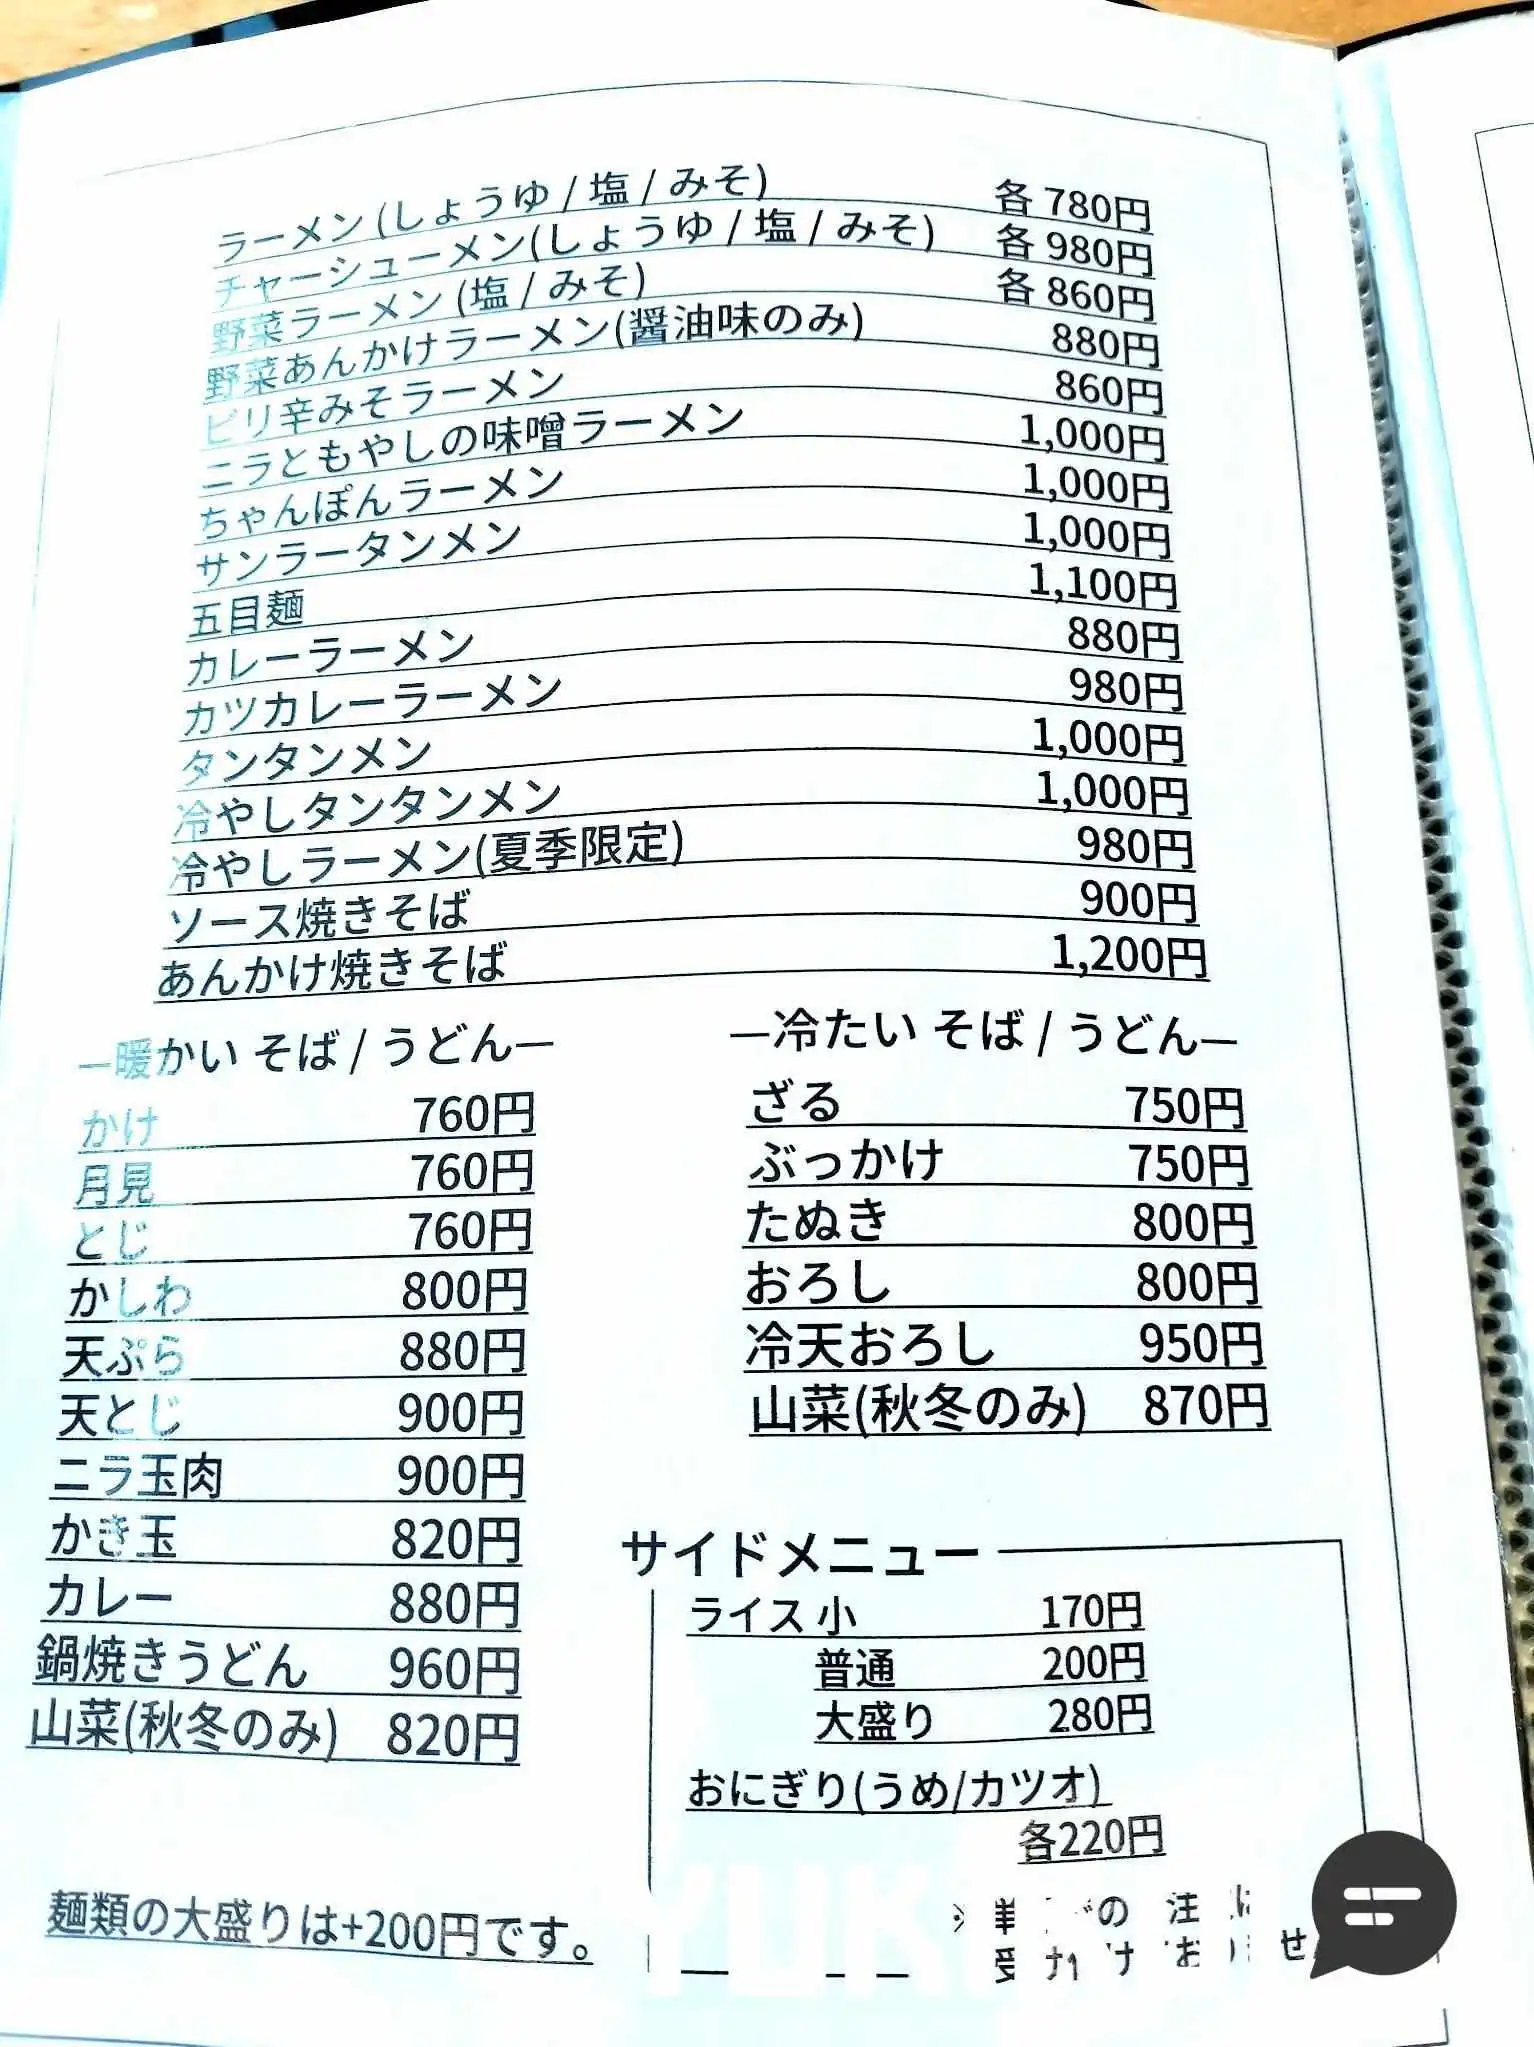 ラーメン(しょうゆ / 塩 / みそ) 各 780円
チャーシューメン(しょうゆ / 塩 / みそ) 各 980円
野菜ラーメン (塩 / みそ) 各 860円
野菜あんかけラーメン(醤油味のみ) 880円
ピリ辛みそラーメン 860円
ニラともやしの味噌ラーメン 1,000円
ちゃんぽんラーメン 1,000円
サンラータンメン 1,000円
五目麺 1,100円
カレーラーメン 880円
カツカレーラーメン 980円
タンタンメン 1,000円
冷やしタンタンメン 1,000円
冷やしラーメン(夏季限定) 980円
ソース焼きそば 900円
あんかけ焼きそば 1,200円
—暖かい そば / うどん—
かけ 760円
月見 760円
とじ 760円
かしわ 800円
天ぷら 880円
天とじ 900円
ニラ玉肉 900円
かき玉 820円
カレー 880円
鍋焼きうどん 960円
山菜(秋冬のみ) 820円
麺類の大盛りは+200円です。
—冷たい そば / うどん—
ざる 750円
ぶっかけ 750円
たぬき 800円
おろし 800円
冷天おろし 950円
山菜(秋冬のみ) 870円
サイドメニュー
ライス 小 170円
普通 200円
大盛り 280円
おにぎり(うめ/カツオ)
各220円